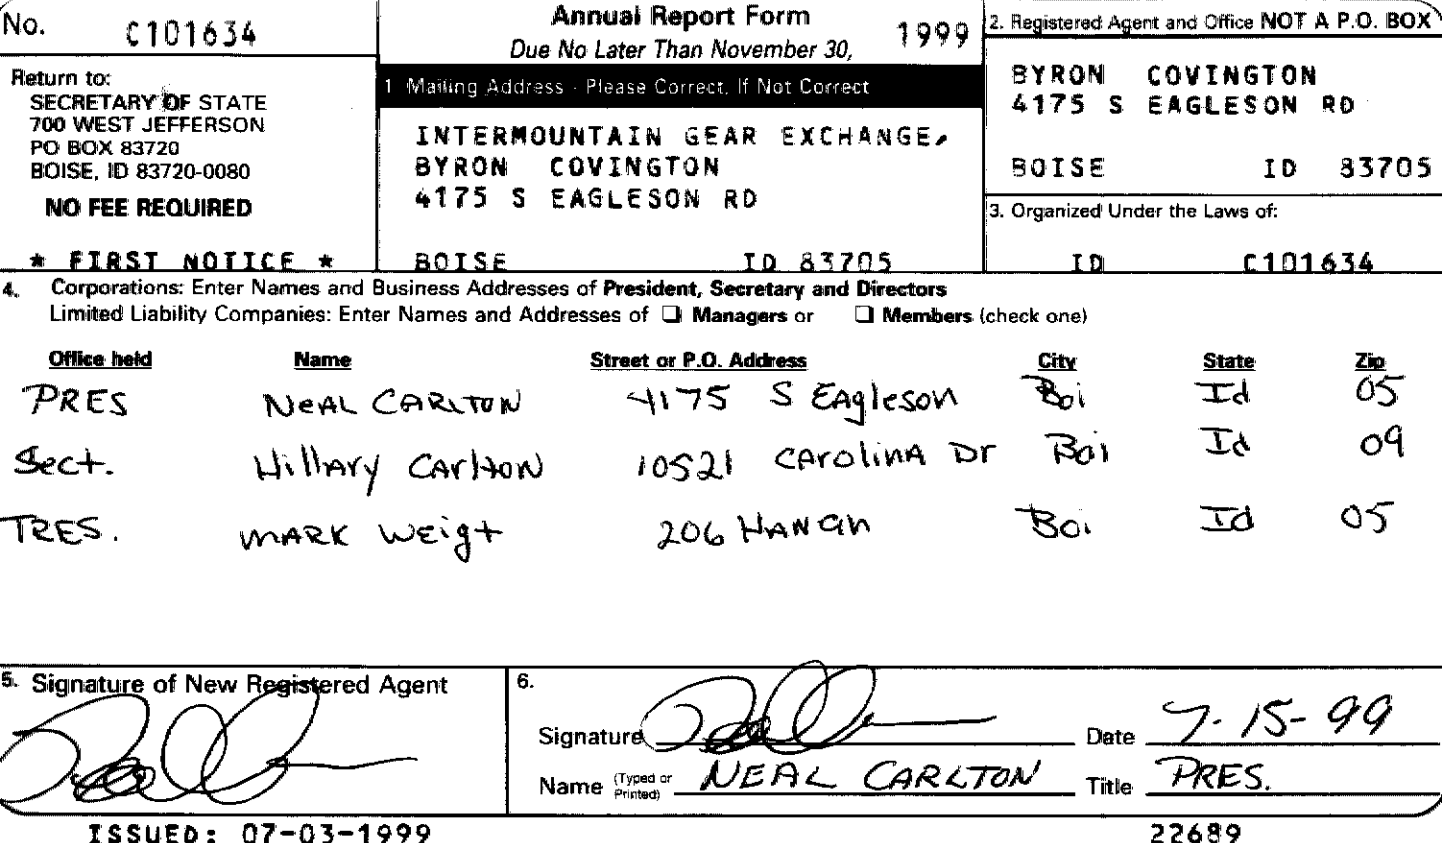 No. C101634
Return to:
SECRETARY OF STATE
700 WEST JEFFERSON
PO BOX 83720
BOISE, ID 83720-0080
NO FEE REQUIRED
* FIRST NOTICE *
Annual Report Form
Due No Later Than November 30, 1999
1 Mailing Address - Please Correct, If Not Correct
INTERMOUNTAIN GEAR EXCHANGE,
BYRON COVINGTON
4175 S EAGLESON RD
BOISE ID 83705
2. Registered Agent and Office NOT A P.O. BOX
BYRON COVINGTON
4175 S EAGLESON RD
BOISE ID 83705
3. Organized Under the Laws of:
ID C101634
4. Corporations: Enter Names and Business Addresses of President, Secretary and Directors
Limited Liability Companies: Enter Names and Addresses of ❑ Managers or ❑ Members (check one)
Office held Name Street or P.O. Address City State Zip
PRES NEAL CARLTON 4175 S Eagleson Boi Id 05
Sect. Hillary Carlton 10521 Carolina Dr Boi Id 09
TRES. MARK Weigt 206 Boi Id 05
5. Signature of New Registered Agent
6.
Signature Date 7-15-99
Name (Typed or Printed) NEAL CARLTON Title PRES.
ISSUED: 07-03-1999 22689